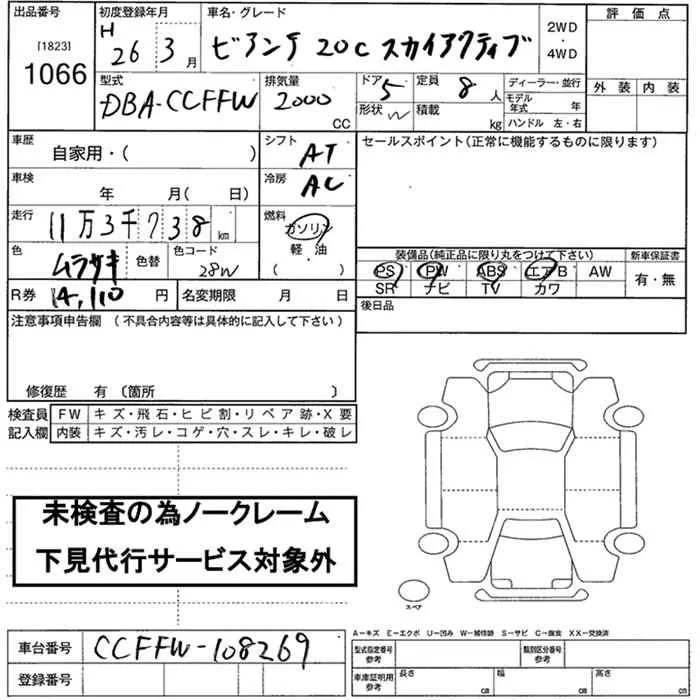 出品番号 初度登録年月 車名・グレード 評価点
[1823] 1066
H 26 3 月 ビアンテ 20C スカイアクティブ 2WD・4WD
外装 内装
型式 排気量 ドア 定員 ディーラー・並行
DBA-CCFFW 2000 CC 5 8 人
形状 W 積載 kg モデル年式 年
ハンドル 左・右
車歴 シフト セールスポイント(正常に機能するものに限ります)
自家用・( ) AT
車検 冷房
年 月( 日) AC
走行 燃料
11万3千738 km ガソリン
軽・油
( )
色 色替 色コード
ムラサキ 28W
装備品(純正品に限り丸をつけて下さい) 新車保証書
PS PW ABS エアB AW 有・無
SR ナビ TV カワ
R券 14,110 円 名変期限 月 日
後日品
注意事項申告欄(不具合内容等は具体的に記入して下さい)
修復歴 有 〔箇所 〕
検査員 FW キズ・飛石・ヒビ割・リペア跡・X要
記入欄 内装 キズ・汚レ・コゲ・穴・スレ・キレ・破レ
未検査の為ノークレーム
下見代行サービス対象外
スペア
A→キズ E→エクボ U→凹み W→補修跡 S→サビ C→腐食 XX→交換済
車台番号 CCFFW-108269
登録番号
型式指定番号 参考 類別区分番号 参考
車庫証明用 参考 長さ cm 幅 cm 高さ cm